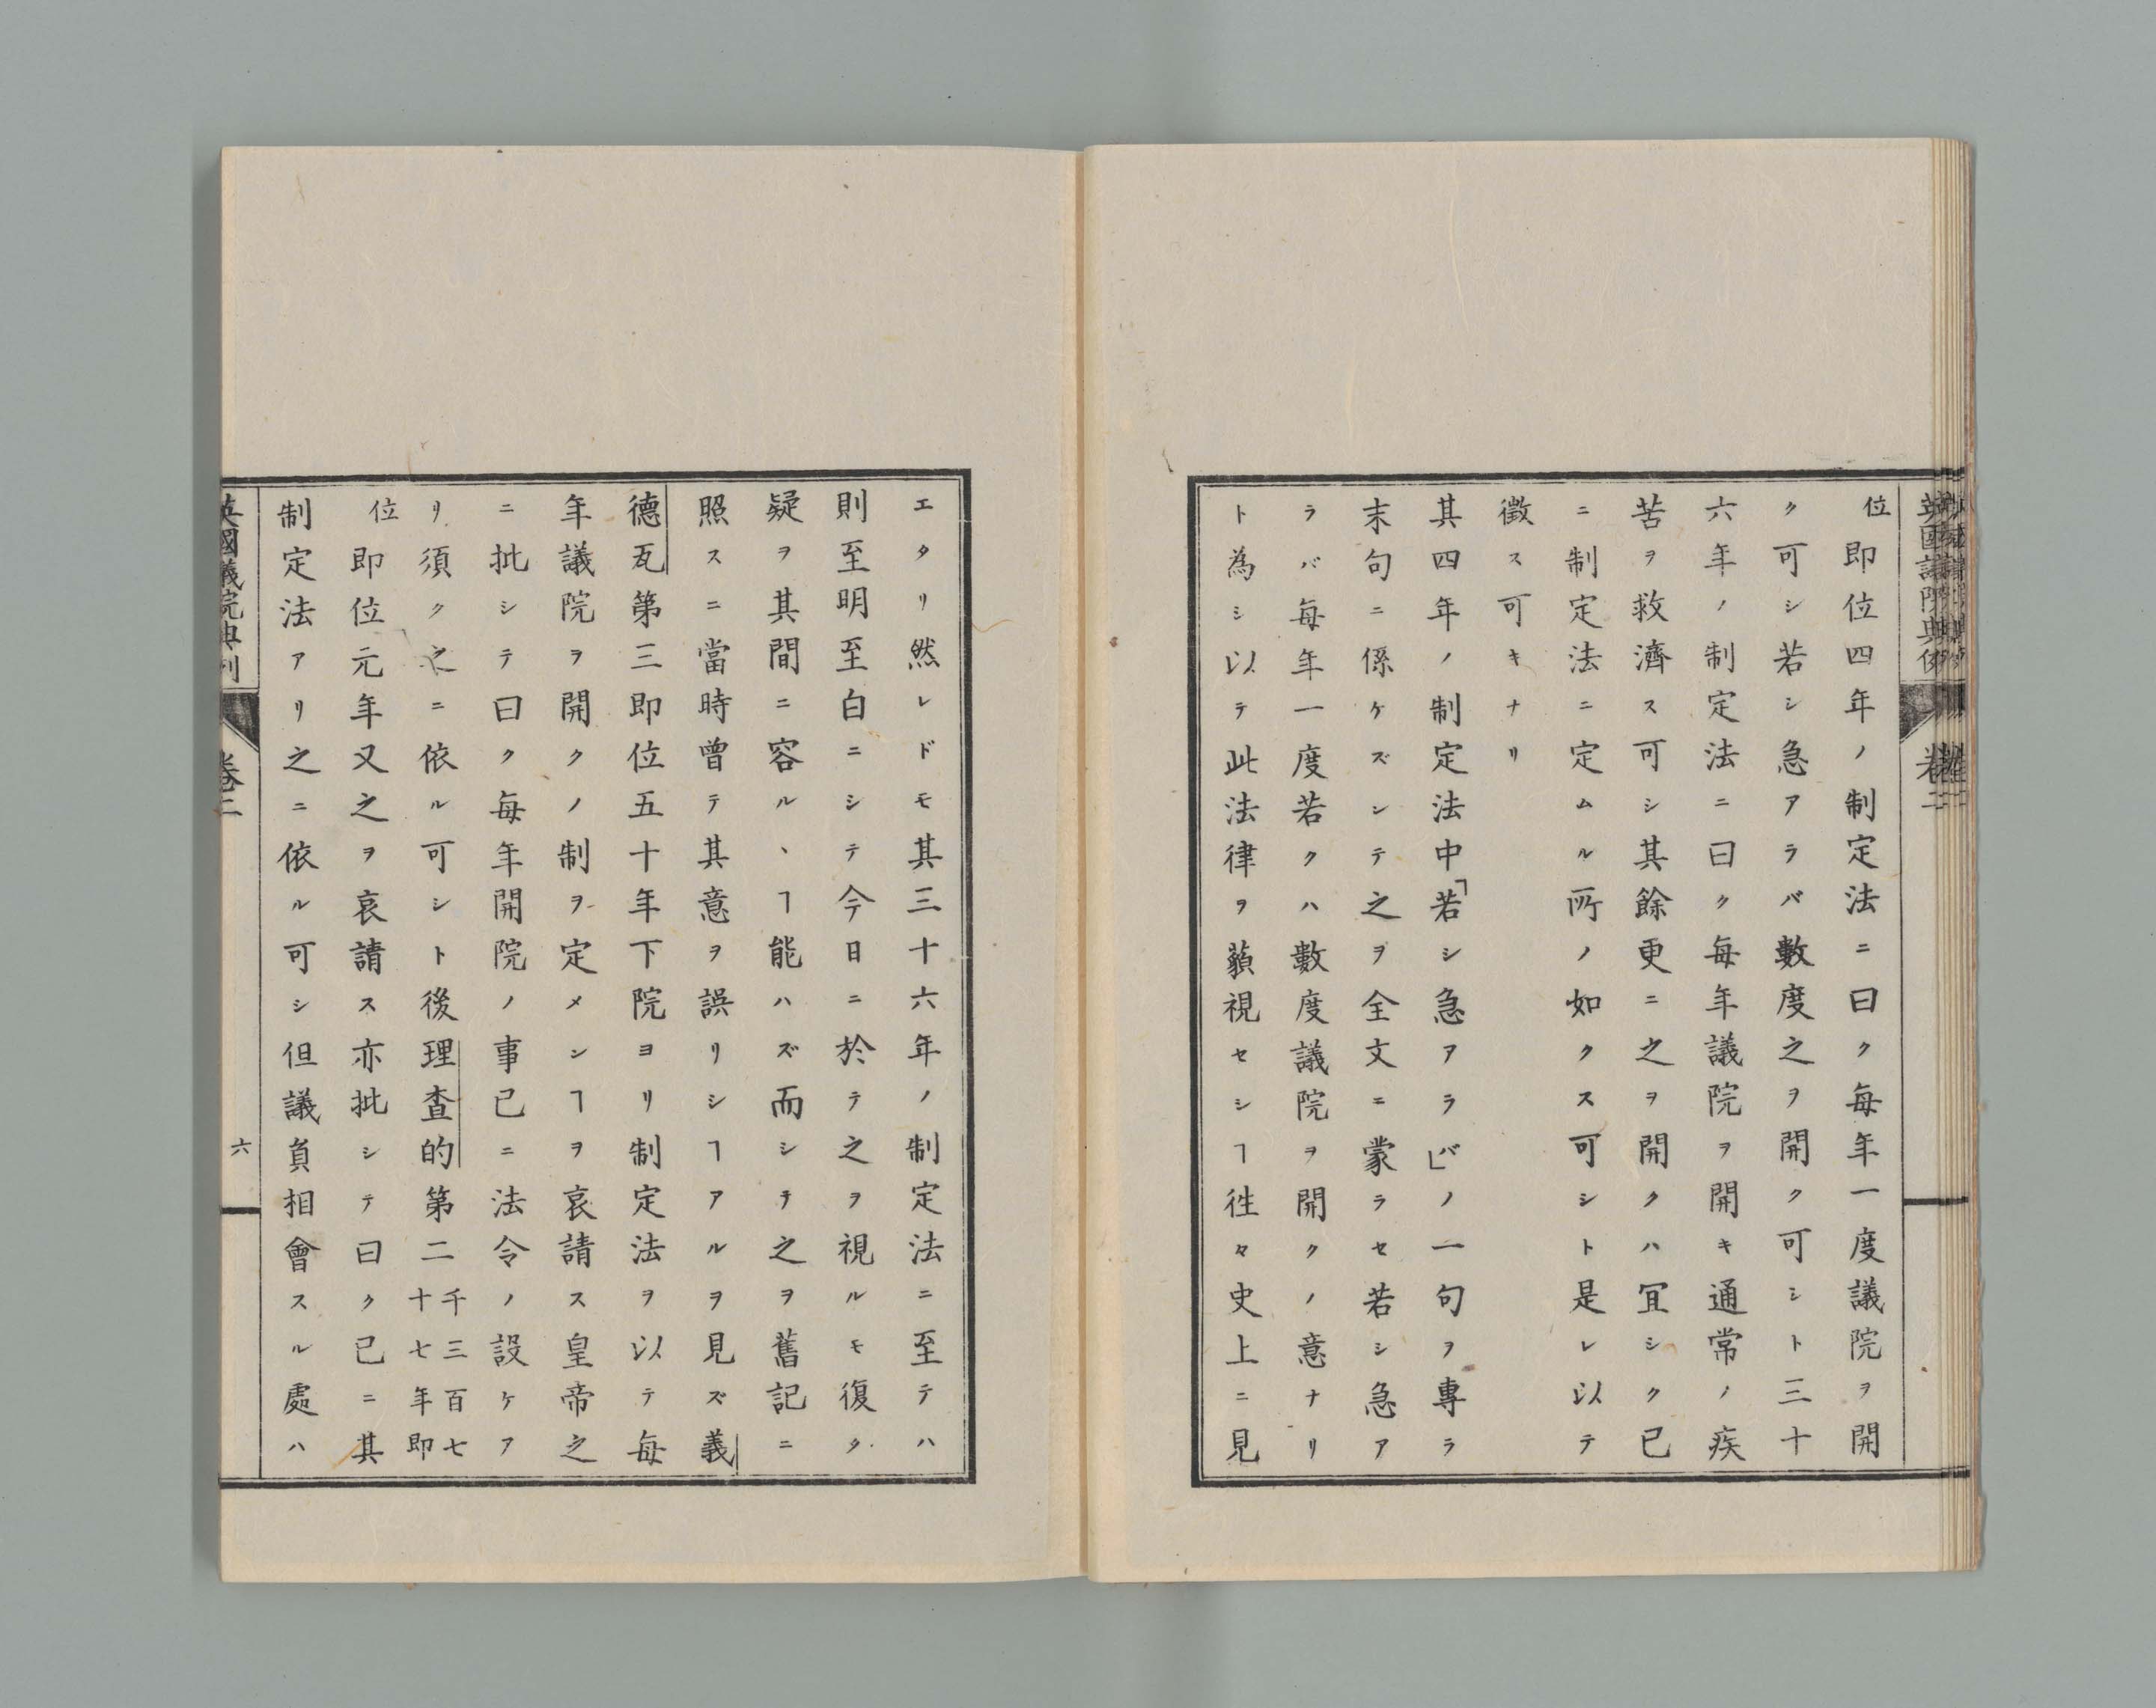 英國議院典例
卷二
位即位四年ノ制定法ニ曰ク毎年一度議院ヲ開
ク可シ若シ急アラバ數度之ヲ開ク可シト三十
六年ノ制定法ニ曰ク毎年議院ヲ開キ通常ノ疾
苦ヲ救濟ス可シ其餘更ニ之ヲ開クハ冝シク已
ニ制定法ニ定ムル所ノ如クス可シト是レ以テ
徴ス可キナリ
其四年ノ制定法中「若シ急アラバ」ノ一句ヲ專ラ
末句ニ係ケズシテ之ヲ全文ニ蒙ラセ若シ急ア
ラバ毎年一度若クハ數度議院ヲ開クノ意ナリ
ト為シ以テ此法律ヲ藐視セシヿ徃々史上ニ見
エタリ然レドモ其三十六年ノ制定法ニ至テハ
則至明至白ニシテ今日ニ於テ之ヲ視ルモ復ク
疑ヲ其間ニ容ル、ヿ能ハズ而シテ之ヲ舊記ニ
照スニ當時曽テ其意ヲ誤リシヿアルヲ見ズ義
德瓦第三即位五十年下院ヨリ制定法ヲ以テ毎
年議院ヲ開クノ制ヲ定メンヿヲ哀請ス皇帝之
ニ批シテ曰ク毎年開院ノ事已ニ法令ノ設ケア
リ須ク之ニ依ル可シト後理査的第二千三百七
十七年即
位即位元年又之ヲ哀請ス亦批シテ曰ク已ニ其
制定法アリ之ニ依ル可シ但議負相會スル處ハ
英國議院典例
卷二
六